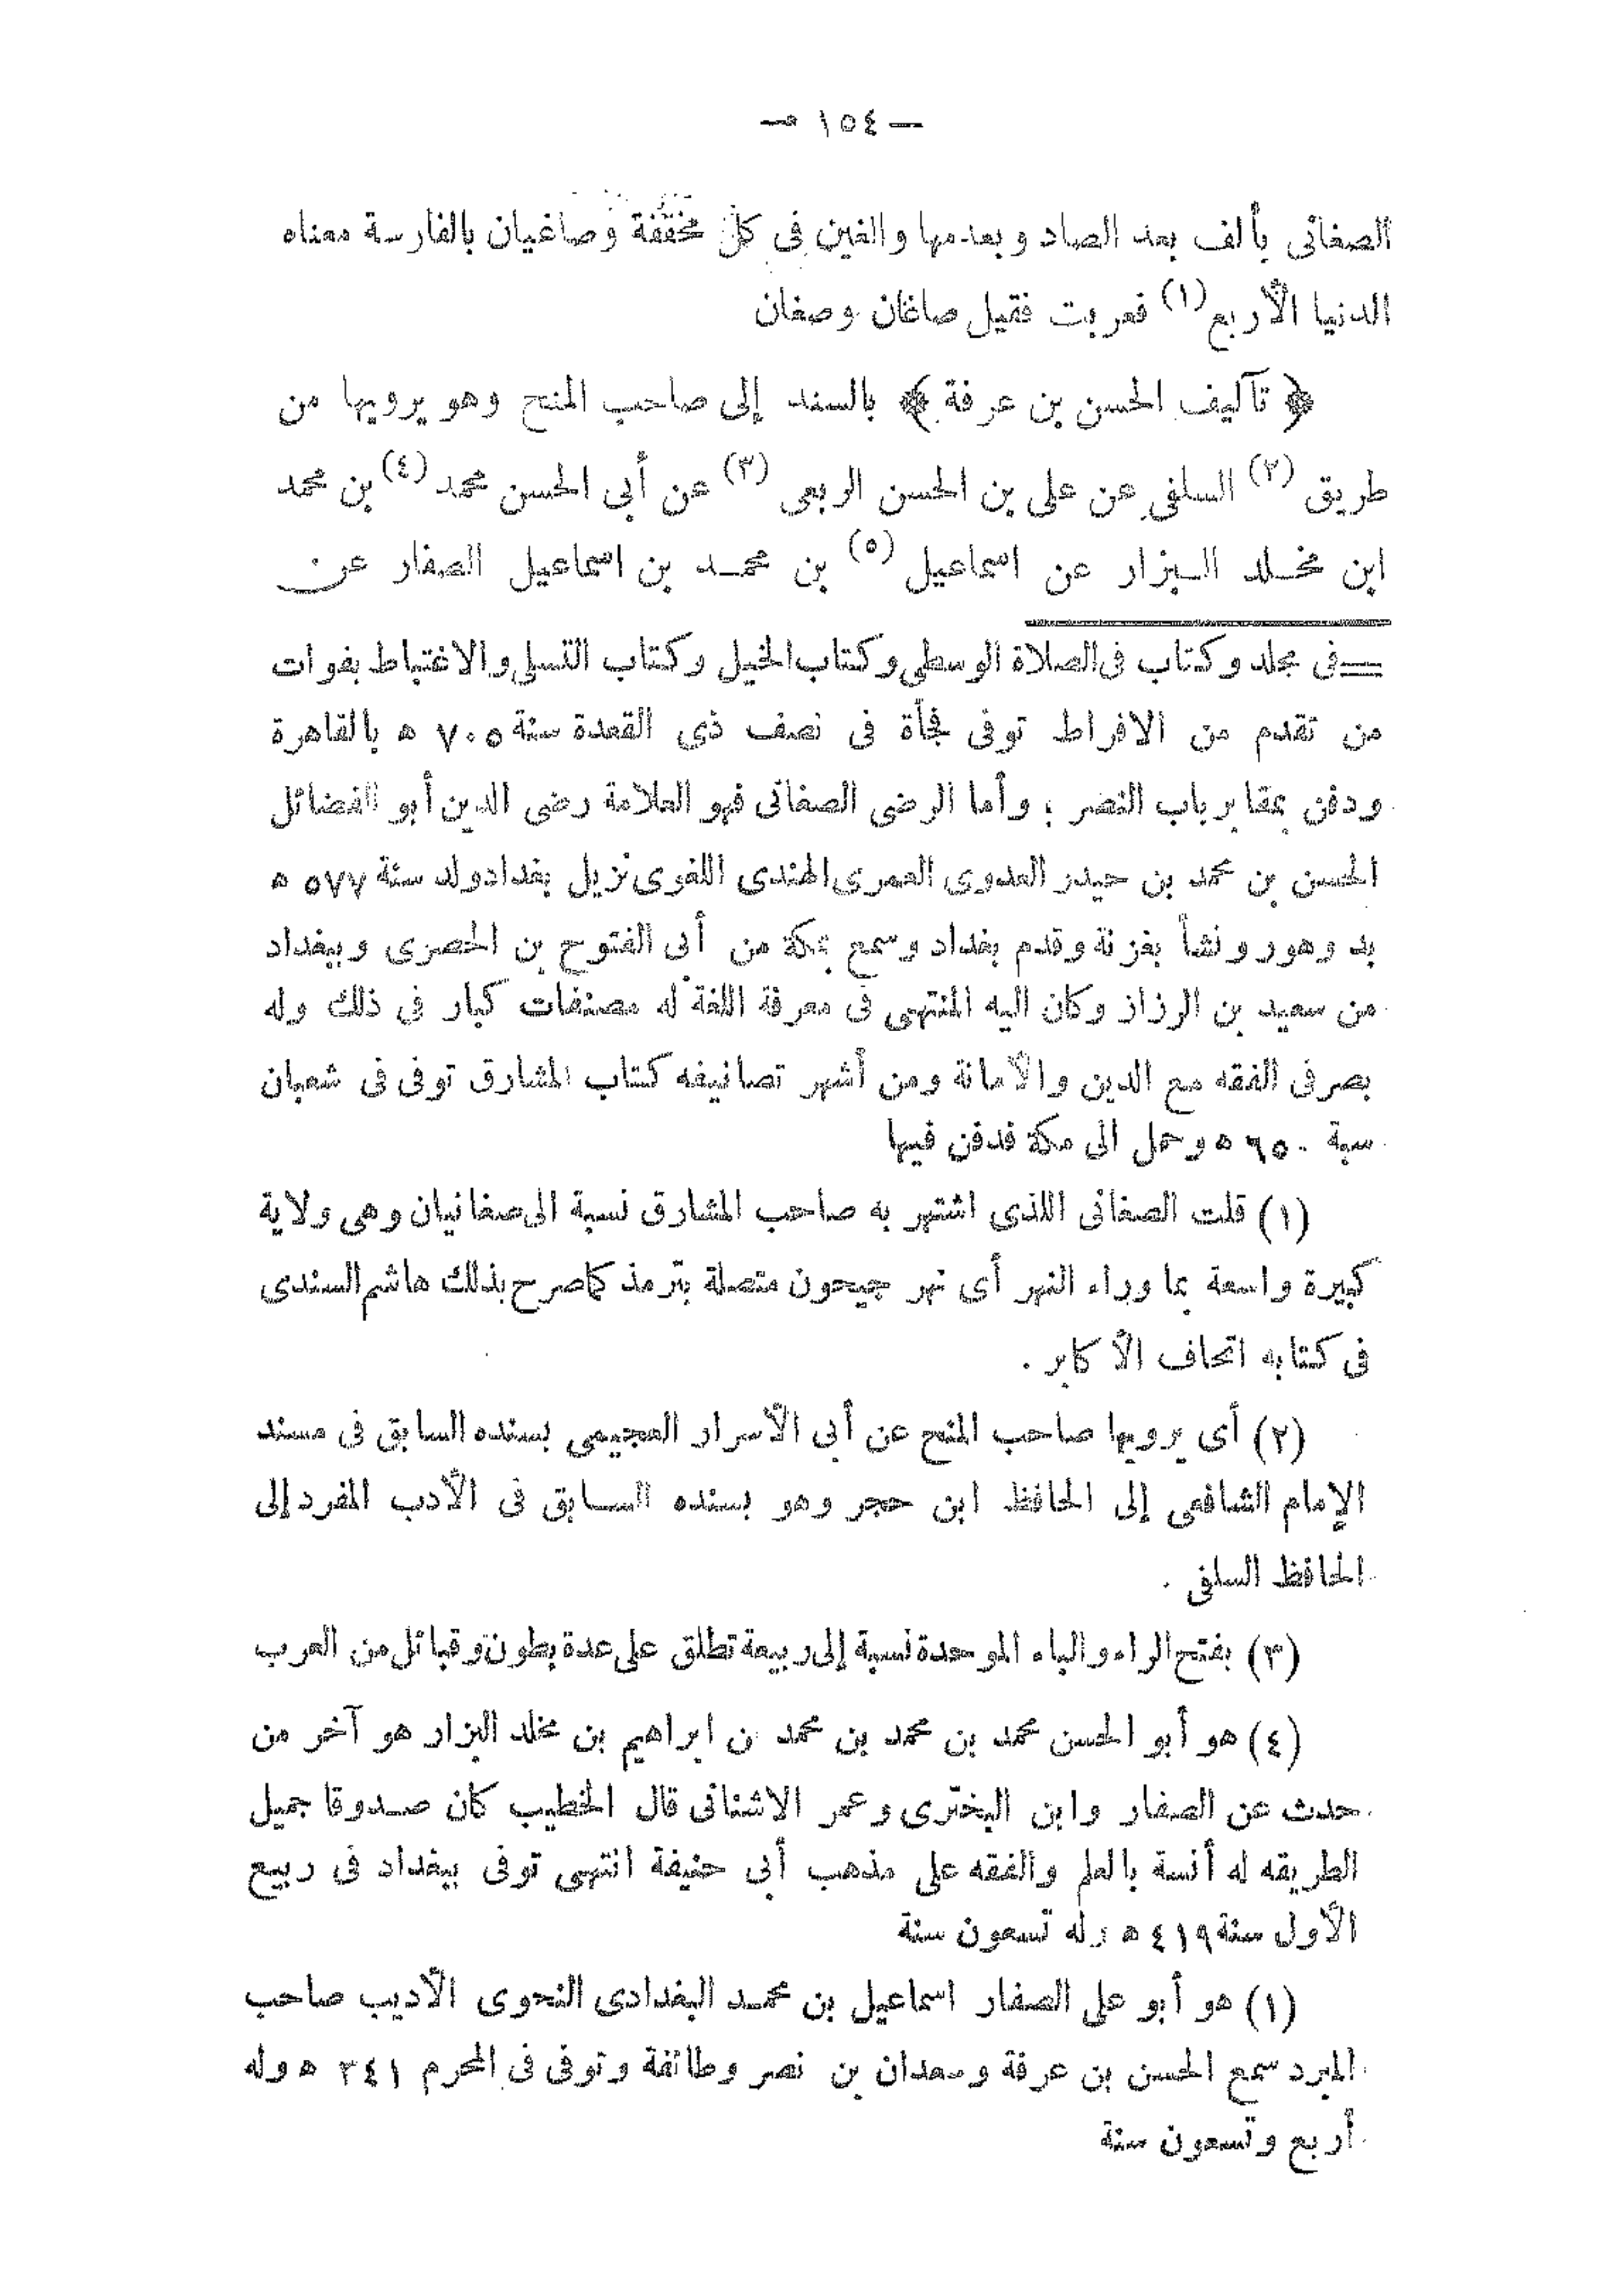 — ١٥٤ —
الصغانى بألف بعد الصاد وبعدمها والغين فى كل مخففة وصاغيان بالفارسة معناه
الدنيا الأربع (١) فعربت فقيل صاغان وصغان
﴿ تآليف الحسن بن عرفة ﴾ بالسند إلى صاحب المنح وهو يرويها من
طريق (٢) السلفى عن على بن الحسن الربعى (٣) عن أبى الحسن محمد (٤) بن محمد
ابن مخلد البزار عن اسماعيل (٥) بن محمد بن اسماعيل الصفار عن
= فى مجلد وكتاب فى الصلاة الوسطى وكتاب الخيل وكتاب التسلى والاغتباط بفوات
من تقدم من الافراط توفى فجأة فى نصف ذى القعدة سنة ٧٠٥ ه بالقاهرة
ودفن بمقابر باب النصر ؛ وأما الرضى الصغانى فهو العلامة رضى الدين أبو الفضائل
الحسن بن محمد بن حيدر العدوى العمرى الهندى اللغوى نزيل بغداد ولد سنة ٥٧٧ ه
بد وهور ونشأ بغزنة وقدم بغداد وسمع بمكة من أبى الفتوح بن الحصرى وببغداد
من سعيد بن الرزاز وكان اليه المنتهى فى معرفة اللغة له مصنفات كبار فى ذلك وله
بصر فى الفقه مع الدين والأمانة ومن أشهر تصانيفه كتاب المشارق توفى فى شعبان
سبة ٦٥٠ ه وحمل الى مكة فدفن فيها
(١) قلت الصغانى اللذى اشتهر به صاحب المشارق نسبة الى صغانيان وهى ولاية
كبيرة واسعة بما وراء النهر أى نهر جيحون متصلة بترمذ كما صرح بذلك هاشم السندى
فى كتابه اتحاف الأكابر .
(٢) أى يرويها صاحب المنح عن أبى الأسرار العجيمى بسنده السابق فى مسند
الإمام الشافعى إلى الحافظ ابن حجر وهو بسنده السابق فى الأدب المفرد إلى
الحافظ السلفى .
(٣) بفتح الراء والباء الموحدة نسبة إلى ربيعة تطلق على عدة بطون وقبائل من العرب
(٤) هو أبو الحسن محمد بن محمد بن محمد ن ابراهيم بن مخلد البزار هو آخر من
حدث عن الصفار وابن البخترى وعمر الاشنانى قال الخطيب كان صدوقا جميل
الطريقه له أنسة بالعلم والفقه على مذهب أبى حنيفة انتهى توفى ببغداد فى ربيع
الأول سنة ٤١٩ ه وله تسعون سنة
(١) هو أبو على الصفار اسماعيل بن محمد البغدادى النحوى الأديب صاحب
المبرد سمع الحسن بن عرفة وسعدان بن نصر وطائفة وتوفى فى المحرم ٣٤١ ه وله
أربع وتسعون سنة